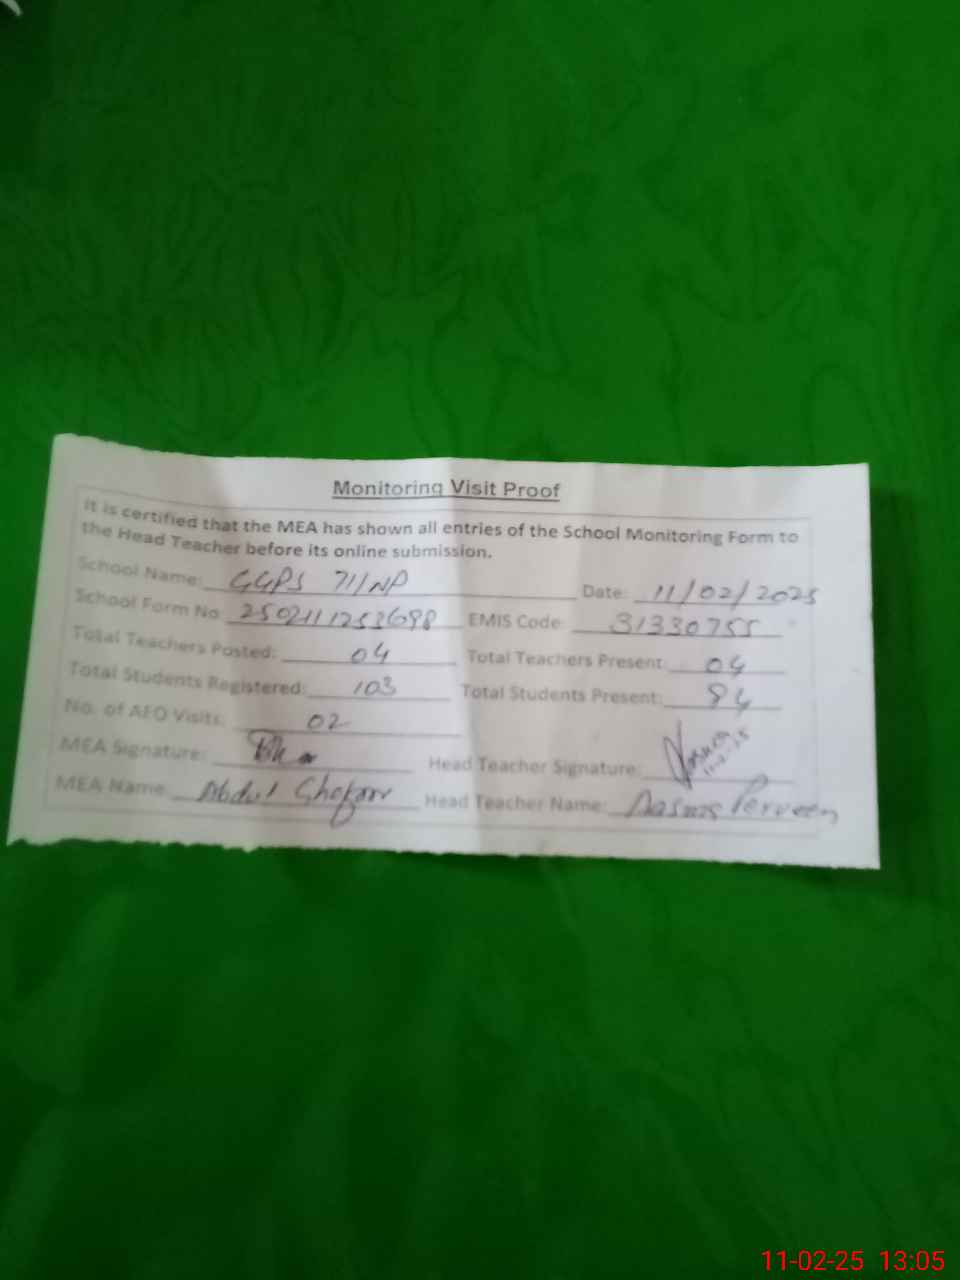 Monitoring Visit Proof
It is certified that the MEA has shown all entries of the School Monitoring Form to
the Head Teacher before its online submission.
School Name: GGPS 71/NP Date: 11/02/2025
School Form No: 250211125 EMIS Code: 31330755
Total Teachers Posted: 04 Total Teachers Present: 04
Total Students Registered: 103 Total Students Present: 84
No. of AEO Visits: 02
MEA Signature: Head Teacher Signature:
MEA Name: Abdul Ghafoor Head Teacher Name: Perveen
11-02-25 13:05